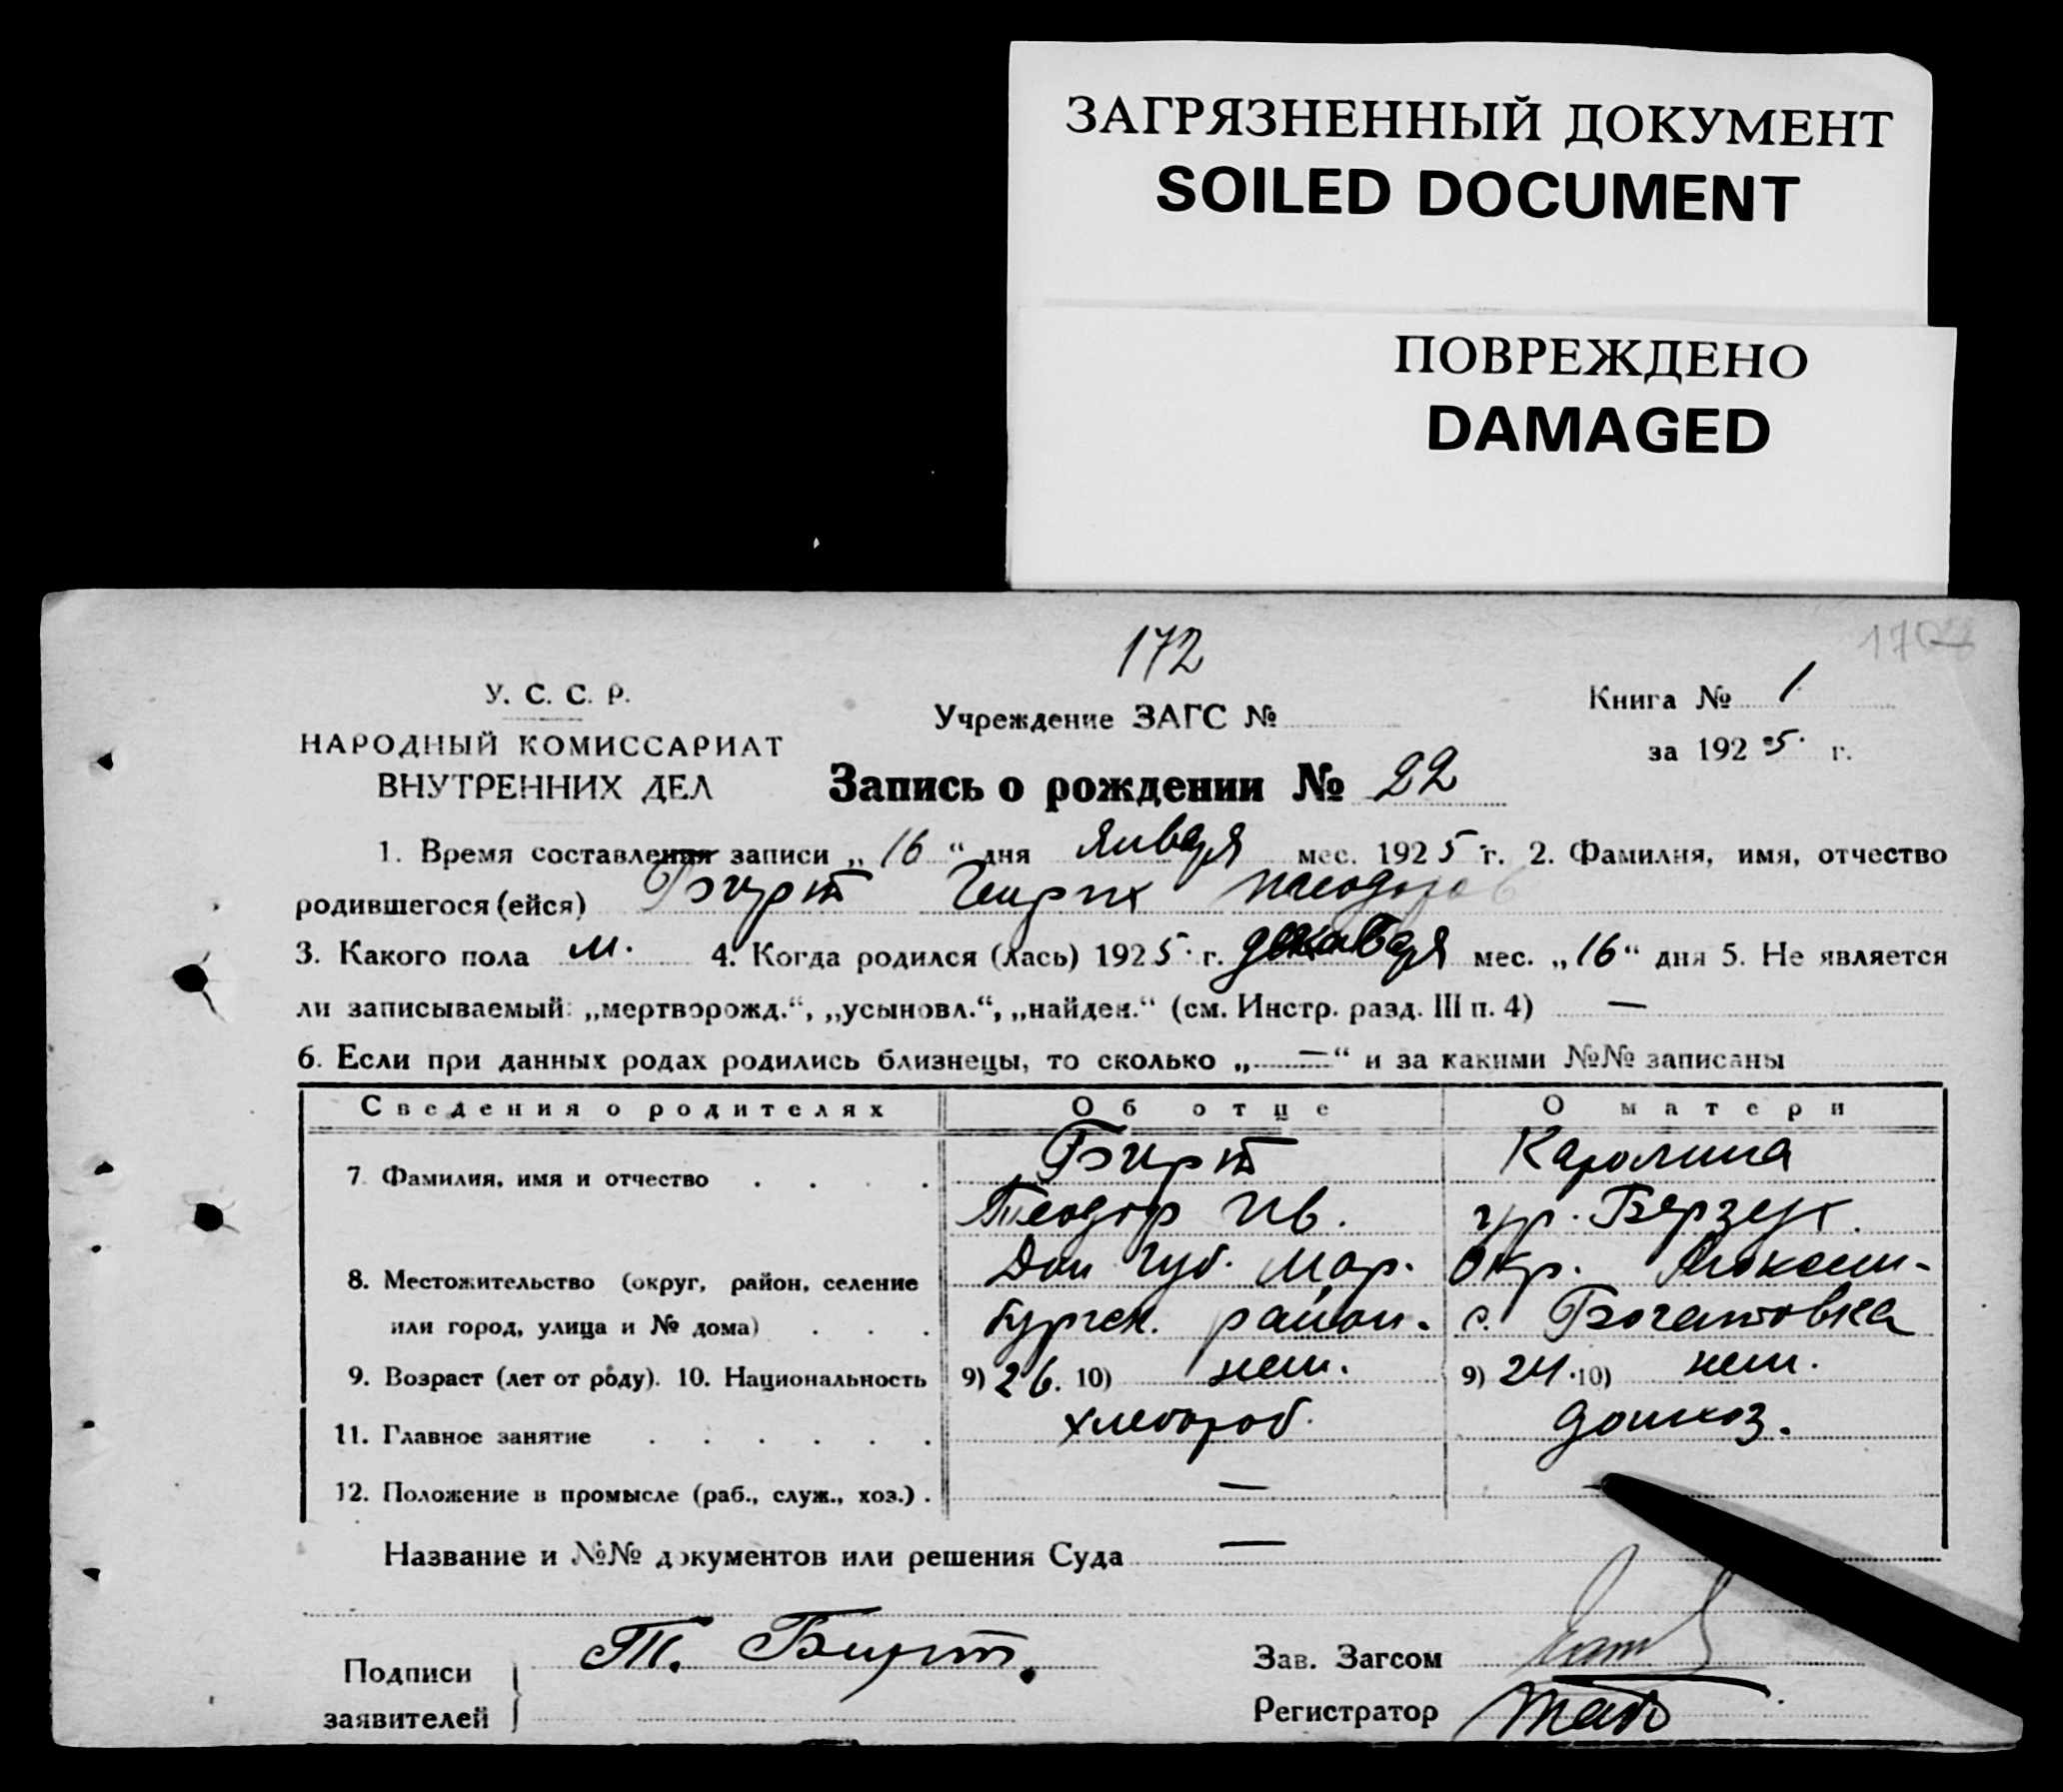 ЗАГРЯЗНЕННЫЙ ДОКУМЕНТ
SOILED DOCUMENT
ПОВРЕЖДЕНО
DAMAGED
172
У. С. С. Р.
НАРОДНЫЙ КОМИССАРИАТ
ВНУТРЕННИХ ДЕЛ
Учреждение ЗАГС №
Книга № 1
за 1925 г.
Запись о рождении № 22
1. Время составления записи „16“ дня января мес. 1925 г. 2. Фамилия, имя, отчество
родившегося (ейся) Бирт Генрих Теодоров
3. Какого пола м. 4. Когда родился (лась) 1925 г. декабря мес. „16“ дня 5. Не является
ли записываемый: „мертворожд.“, „усыновл.“, „найден.“ (см. Инстр. разд. III п. 4) —
6. Если при данных родах родились близнецы, то сколько „—“ и за какими №№ записаны
Сведения о родителях Об отце О матери
7. Фамилия, имя и отчество Бирт Каролина
Теодор Ив. ур.
8. Местожительство (округ, район, селение Дон губ. Мар. окр.
или город, улица и № дома) бургск. район. с. Богатовка
9. Возраст (лет от роду). 10. Национальность 9) 26. 10) нем. 9) 24. 10) нем.
11. Главное занятие хлебороб. домхоз.
12. Положение в промысле (раб., служ., хоз.) — —
Название и №№ документов или решения Суда —
Подписи
заявителей
Т. Бирт.
Зав. Загсом
Регистратор